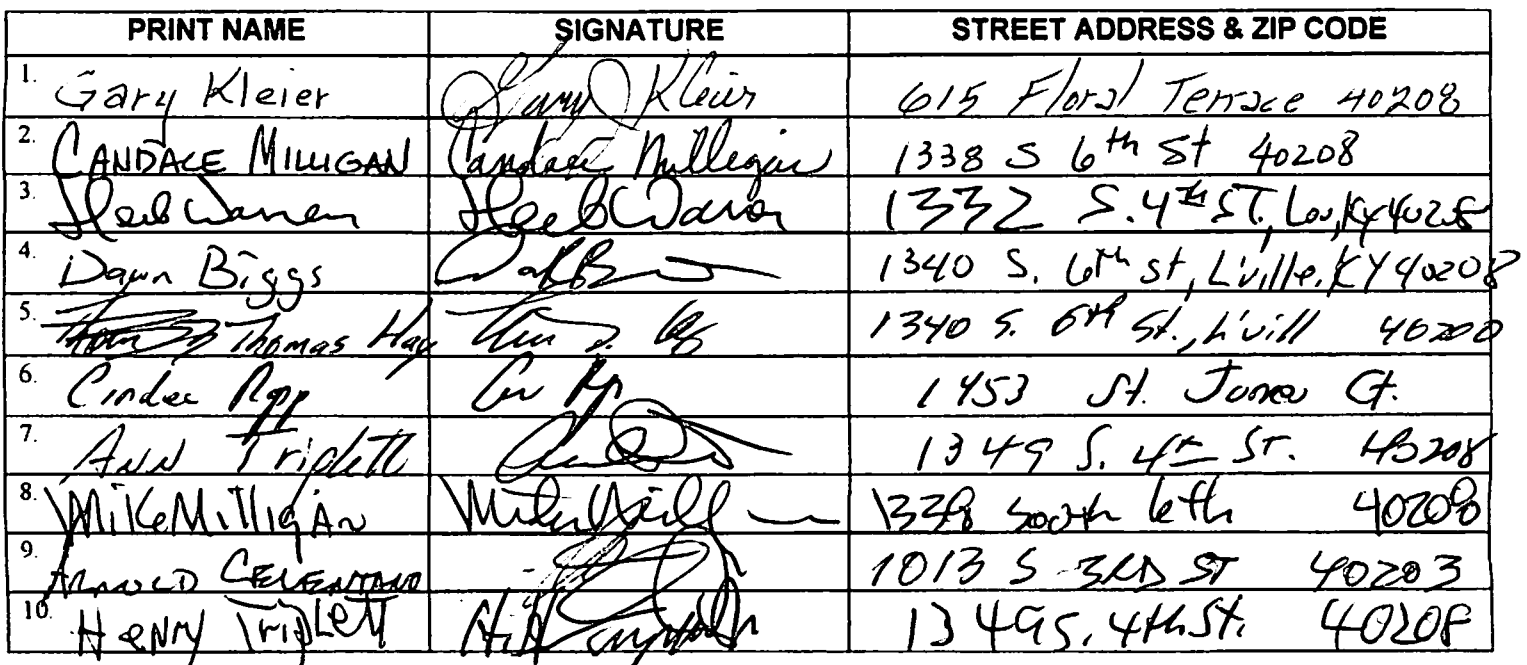 PRINT NAME SIGNATURE STREET ADDRESS & ZIP CODE
1. Gary Kleier Gary J Kleier 615 Floral Terrace 40208
2. CANDACE MILLIGAN Candace Milligan 1338 S 6th St 40208
3. Herb Warren Herb Warren 1332 S. 4th ST, Lou, Ky 40208
4. Dawn Biggs 1340 S. 6th st, L'ville, KY 40208
5. Thomas Hay 1340 S. 6th St., L'vill 40200
6. Cindee Rapp 1453 St. James Ct.
7. Ann Triplett 1349 S. 4th ST. 43208
8. Mike Milligan 1338 South 6th 40208
9. ARNOLD CELENTANO 1013 S 3RD ST 40203
10. Henry Triplett 1349 S. 4th St. 40208